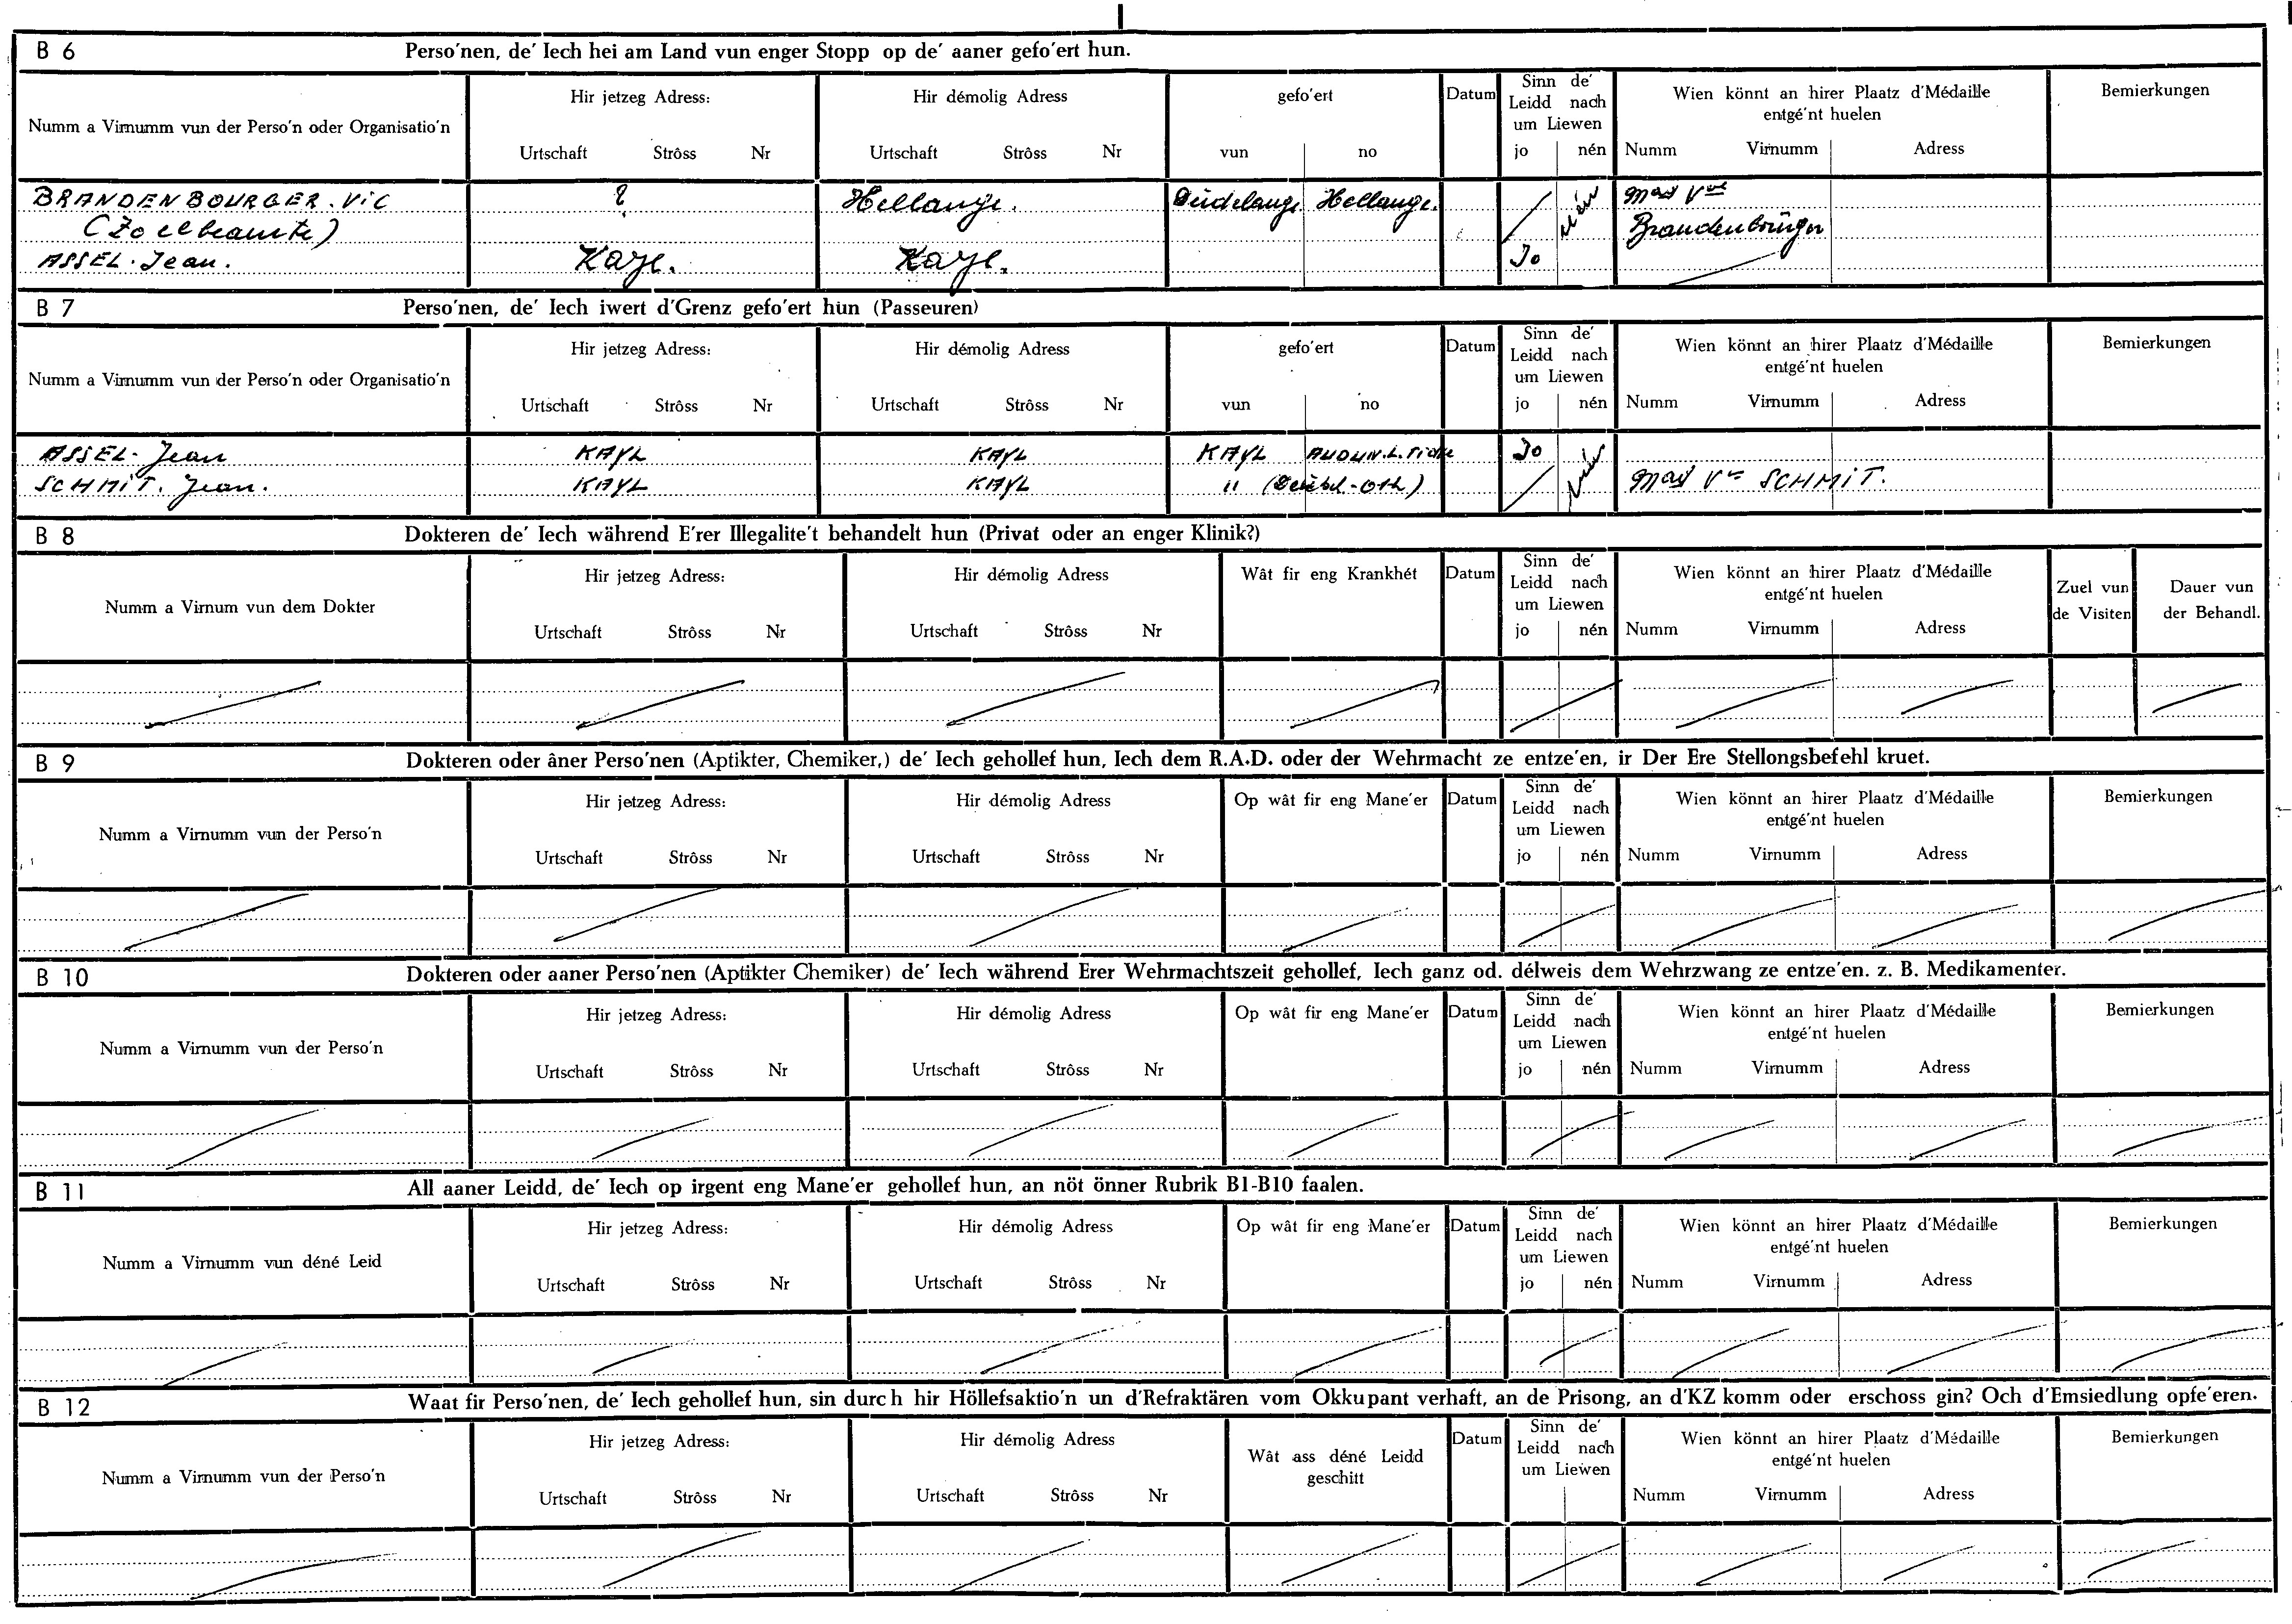 B 6 Perso'nen, de' Iech hei am Land vun enger Stopp op de' aaner gefo'ert hun.
Numm a Virnumm vun der Perso'n oder Organisatio'n
Hir jetzeg Adress:
Urtschaft Strôss Nr
Hir démolig Adress
Urtschaft Strôss Nr
gefo'ert
vun no
Datum
Sinn de'
Leidd nach
um Liewen
jo nén
Wien könnt an hirer Plaatz d'Médaille
entgé'nt huelen
Numm Virnumm Adress
Bemierkungen
BRANDENBOURGER. ViC ? Hellange. Hellange. nén
(Zollbeamte) Brandenburger
ASSEL. Jean. Kayl. Kayl. Jo
B 7 Perso'nen, de' Iech iwert d'Grenz gefo'ert hun (Passeuren)
Numm a Virnumm vun der Perso'n oder Organisatio'n
Hir jetzeg Adress:
Urtschaft Strôss Nr
Hir démolig Adress
Urtschaft Strôss Nr
gefo'ert
vun no
Datum
Sinn de'
Leidd nach
um Liewen
jo nén
Wien könnt an hirer Plaatz d'Médaille
entgé'nt huelen
Numm Virnumm Adress
Bemierkungen
ASSEL. Jean KAYL KAYL KAYL AUDUN. L. Jo
SCHMIT. Jean. KAYL KAYL " nén SCHMIT.
B 8 Dokteren de' Iech während E'rer Illegalite't behandelt hun (Privat oder an enger Klinik?)
Numm a Virnum vun dem Dokter
Hir jetzeg Adress:
Urtschaft Strôss Nr
Hir démolig Adress
Urtschaft Strôss Nr
Wât fir eng Krankhét
Datum
Sinn de'
Leidd nach
um Liewen
jo nén
Wien könnt an hirer Plaatz d'Médaille
entgé'nt huelen
Numm Virnumm Adress
Zuel vun
de Visiten
Dauer vun
der Behandl.
B 9 Dokteren oder âner Perso'nen (Aptikter, Chemiker,) de' Iech gehollef hun, Iech dem R.A.D. oder der Wehrmacht ze entze'en, ir Der Ere Stellongsbefehl kruet.
Numm a Virnumm vun der Perso'n
Hir jetzeg Adress:
Urtschaft Strôss Nr
Hir démolig Adress
Urtschaft Strôss Nr
Op wât fir eng Mane'er
Datum
Sinn de'
Leidd nach
um Liewen
jo nén
Wien könnt an hirer Plaatz d'Médaille
entgé'nt huelen
Numm Virnumm Adress
Bemierkungen
B 10 Dokteren oder aaner Perso'nen (Aptikter Chemiker) de' Iech während Erer Wehrmachtszeit gehollef, Iech ganz od. délweis dem Wehrzwang ze entze'en. z. B. Medikamenter.
Numm a Virnumm vun der Perso'n
Hir jetzeg Adress:
Urtschaft Strôss Nr
Hir démolig Adress
Urtschaft Strôss Nr
Op wât fir eng Mane'er
Datum
Sinn de'
Leidd nach
um Liewen
jo nén
Wien könnt an hirer Plaatz d'Médaille
entgé'nt huelen
Numm Virnumm Adress
Bemierkungen
B 11 All aaner Leidd, de' Iech op irgent eng Mane'er gehollef hun, an nöt önner Rubrik B1-B10 faalen.
Numm a Virnumm vun déné Leid
Hir jetzeg Adress:
Urtschaft Strôss Nr
Hir démolig Adress
Urtschaft Strôss Nr
Op wât fir eng Mane'er
Datum
Sinn de'
Leidd nach
um Liewen
jo nén
Wien könnt an hirer Plaatz d'Médaille
entgé'nt huelen
Numm Virnumm Adress
Bemierkungen
B 12 Waat fir Perso'nen, de' Iech gehollef hun, sin durch hir Höllefsaktio'n un d'Refraktären vom Okkupant verhaft, an de Prisong, an d'KZ komm oder erschoss gin? Och d'Emsiedlung opfe'eren.
Numm a Virnumm vun der Perso'n
Hir jetzeg Adress:
Urtschaft Strôss Nr
Hir démolig Adress
Urtschaft Strôss Nr
Wât ass déné Leidd
geschitt
Datum
Sinn de'
Leidd nach
um Liewen
Wien könnt an hirer Plaatz d'Médaille
entgé'nt huelen
Numm Virnumm Adress
Bemierkungen